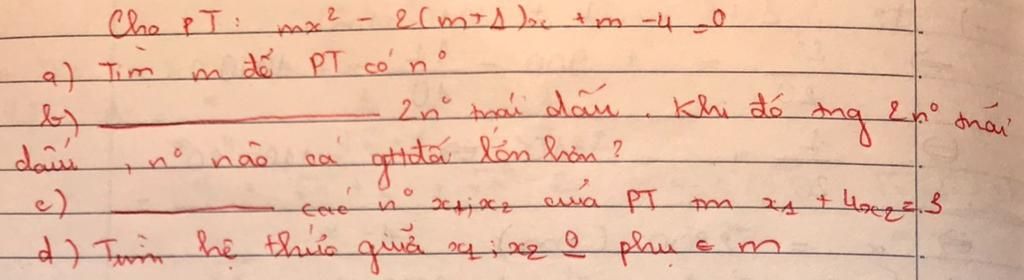 Cho PT: mx² - 2(m+1)x + m - 4 = 0
a) Tìm m để PT có n°
b) ________ 2n° trái dấu. Khi đó trg 2n° trái
dấu, n° nào có gttđối lớn hơn?
c) ________ các n° x₁; x₂ của PT m x₁ + 4x₂ = 3
d) Tìm hệ thức giữa x₁; x₂ 0 phụ ∈ m